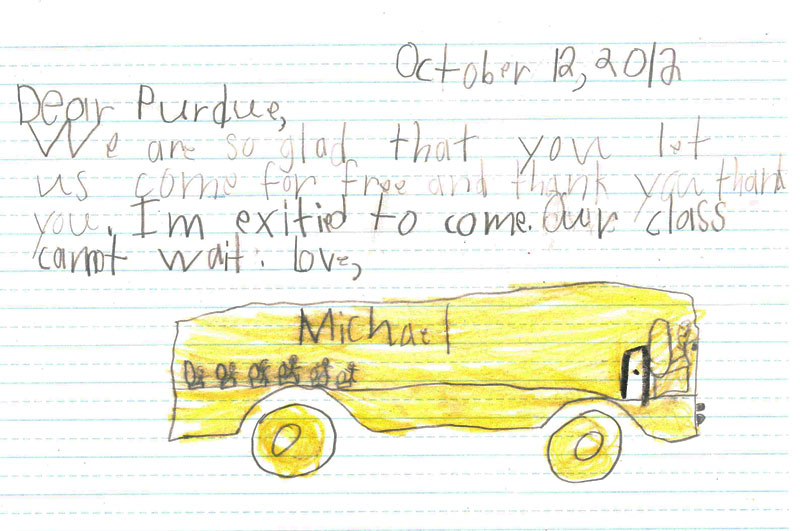 October 12, 2012
Dear Purdue,
We are so glad that you let
us come for free and thank you thank
you. I'm exitied to come. Our class
cannot wait. love,
Michael